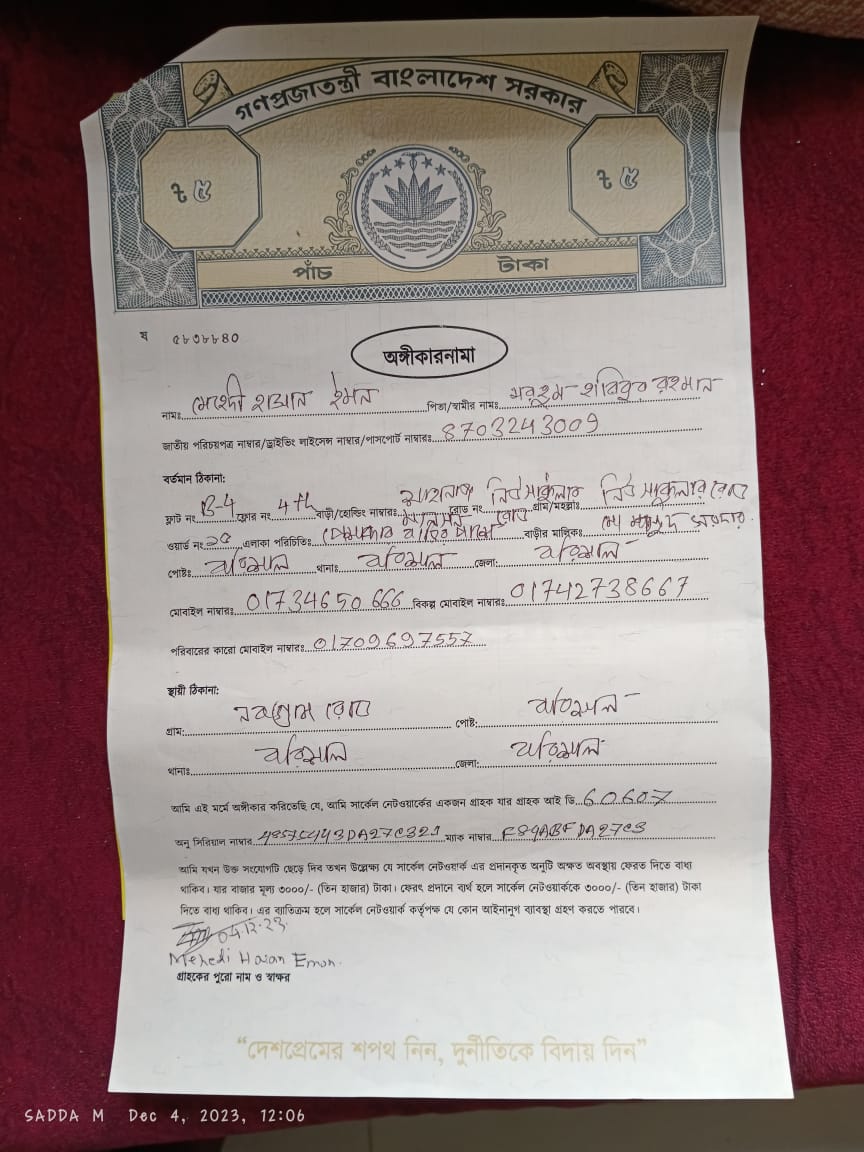 গণপ্রজাতন্ত্রী বাংলাদেশ সরকার
৳ ৫ ৳ ৫
পাঁচ টাকা
ষ ৫৮৩৮৮৪০
অঙ্গীকারনামা
নামঃ মেহেদী হাসান ইমন পিতা/স্বামীর নামঃ মরহুম হাবিবুর রহমান
জাতীয় পরিচয়পত্র নাম্বার/ড্রাইভিং লাইসেন্স নাম্বার/পাসপোর্ট নাম্বারঃ 8703243009
বর্তমান ঠিকানা:
ফ্লাট নং B-4 ফ্লোর নং 4th বাড়ী/হোল্ডিং নাম্বারঃ রোড নং নিউ সার্কুলার রোড গ্রাম/মহল্লাঃ নিউ সার্কুলার রোড
ওয়ার্ড নং ২০ এলাকা পরিচিতিঃ বাড়ীর মালিকঃ
পোষ্টঃ বরিশাল থানাঃ বরিশাল জেলা: বরিশাল
মোবাইল নাম্বারঃ 01734650666 বিকল্প মোবাইল নাম্বারঃ 01742738667
পরিবারের কারো মোবাইল নাম্বারঃ 01709697557
স্থায়ী ঠিকানা:
গ্রাম: নবগ্রাম রোড পোষ্ট: বরিশাল
থানাঃ বরিশাল জেলা: বরিশাল
আমি এই মর্মে অঙ্গীকার করিতেছি যে, আমি সার্কেল নেটওয়ার্কের একজন গ্রাহক যার গ্রাহক আই ডি 60607
অনু সিরিয়াল নাম্বার ম্যাক নাম্বার F89ABFDA27C3
আমি যখন উক্ত সংযোগটি ছেড়ে দিব তখন উল্লেক্ষ্য যে সার্কেল নেটওয়ার্ক এর প্রদানকৃত অনুটি অক্ষত অবস্থায় ফেরত দিতে বাধ্য
থাকিব। যার বাজার মূল্য ৩০০০/- (তিন হাজার) টাকা। ফেরৎ প্রদানে ব্যর্থ হলে সার্কেল নেটওয়ার্ককে ৩০০০/- (তিন হাজার) টাকা
দিতে বাধ্য থাকিব। এর ব্যতিক্রম হলে সার্কেল নেটওয়ার্ক কর্তৃপক্ষ যে কোন আইনানুগ ব্যবস্থা গ্রহণ করতে পারবে।
04.12.23
Mehedi Hasan Emon.
গ্রাহকের পুরো নাম ও স্বাক্ষর
“দেশপ্রেমের শপথ নিন, দুর্নীতিকে বিদায় দিন”
SADDA M Dec 4, 2023, 12:06